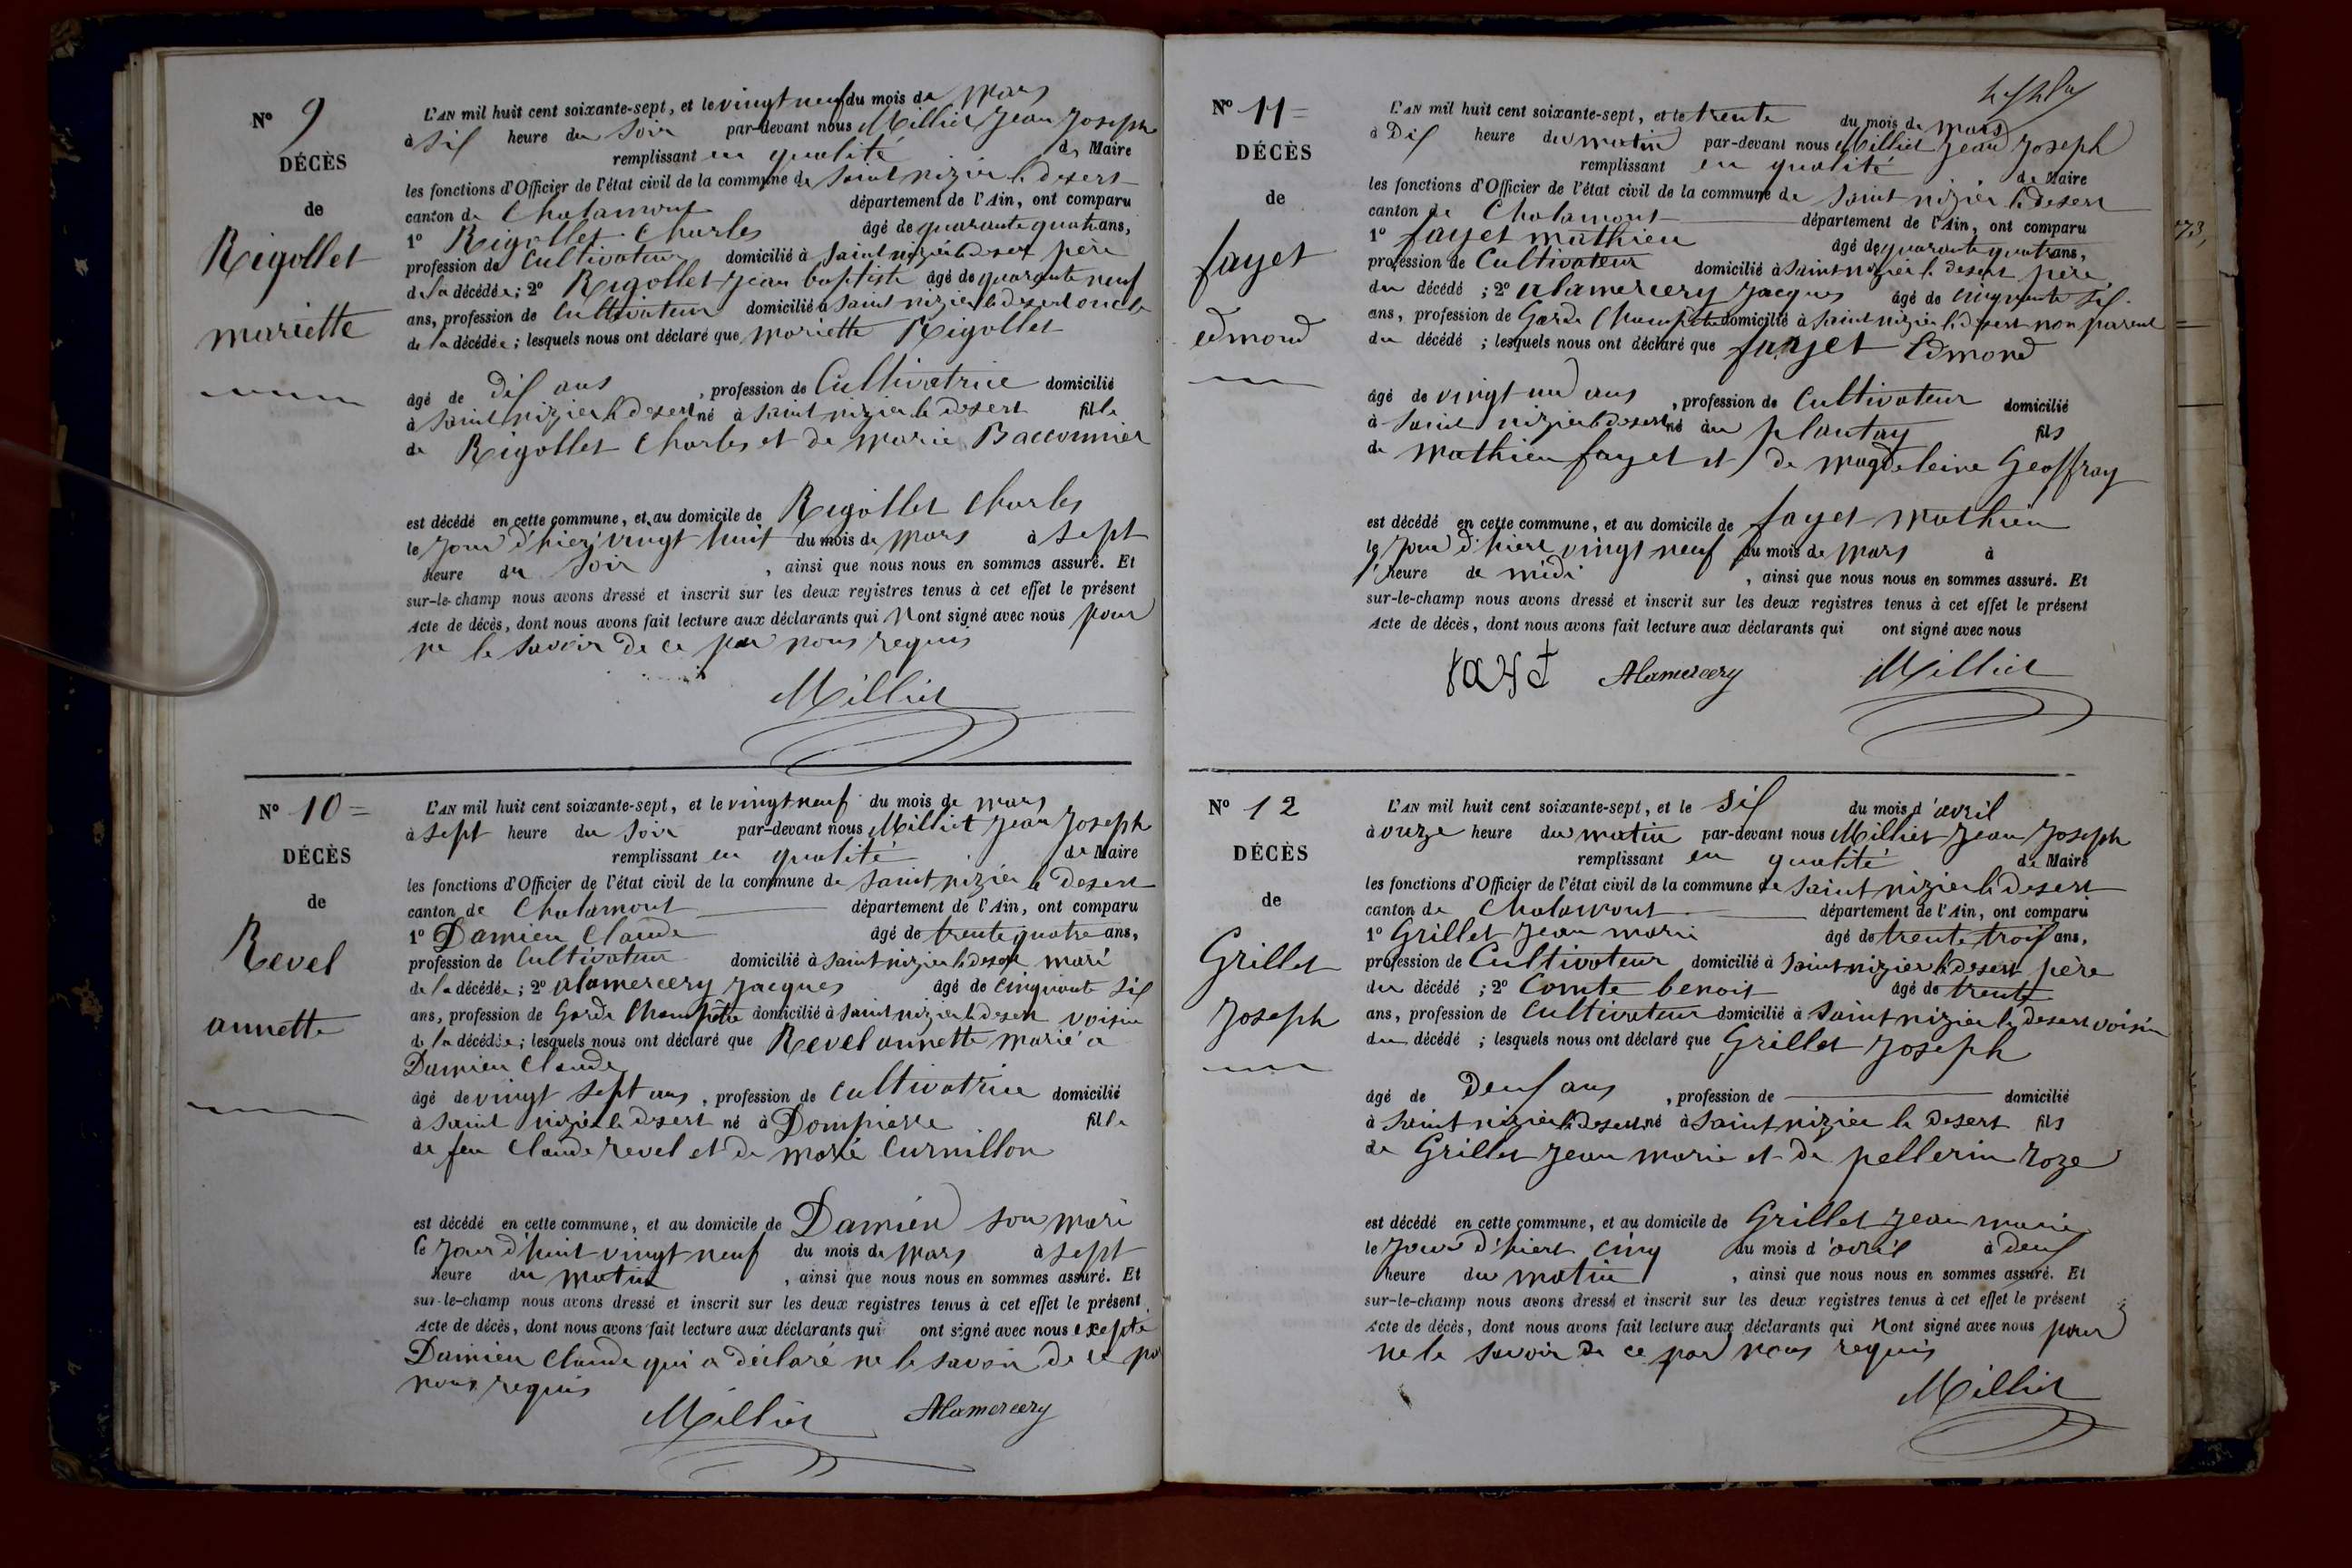 N° 9
DÉCÈS
de
Rigollet
mariette
L'AN mil huit cent soixante-sept, et le vingt neuf du mois de mars
à Six heure du Soir par-devant nous Milliet Jean Joseph
remplissant en qualité de Maire
les fonctions d'Officier de l'état civil de la commune de Saint nizier le desert
canton de Chalamont département de l'Ain, ont comparu
1° Rigollet Charles âgé de quarante quatre ans,
profession de Cultivateur domicilié à Saint nizier le desert père
de la décédée; 2° Rigollet Jean baptiste âgé de quarante neuf
ans, profession de Cultivateur domicilié à Saint nizier le desert oncle
de la décédée; lesquels nous ont déclaré que mariette Rigollet
âgé de Dix ans, profession de Cultivatrice domicilié
à Saint nizier le desert né à Saint nizier le desert fille
de Rigollet Charles et de marie Bacconnier
est décédé en cette commune, et au domicile de Rigollet Charles
le Jour d'hier vingt huit du mois de mars à Sept
heure du Soir, ainsi que nous nous en sommes assuré. Et
sur-le-champ nous avons dressé et inscrit sur les deux registres tenus à cet effet le présent
Acte de décès, dont nous avons fait lecture aux déclarants qui N ont signé avec nous pour
ne le Savoir de ce par nous requis
Milliet
N° 10 =
DÉCÈS
de
Revel
annette
L'AN mil huit cent soixante-sept, et le vingt neuf du mois de mars
à Sept heure du Soir par-devant nous Milliet Jean Joseph
remplissant en qualité de Maire
les fonctions d'Officier de l'état civil de la commune de Saint nizier le Desert
canton de Chalamont département de l'Ain, ont comparu
1° Damien Claude âgé de trente quatre ans,
profession de Cultivateur domicilié à Saint nizier le desert mari
de la décédée; 2° alamercery Jacques âgé de cinquante Six
ans, profession de Garde Champêtre domicilié à Saint nizier le desert voisin
de la décédée; lesquels nous ont déclaré que Revel annette marié a
Damien Claude
âgé de vingt Sept ans, profession de Cultivatrice domicilié
à Saint nizier le desert né à Dompierre fille
de feu Claude revel et de marie Curnillon
est décédé en cette commune, et au domicile de Damien Son mari
le Jour d'huit vingt neuf du mois de mars à Sept
heure du matin, ainsi que nous nous en sommes assuré. Et
sur-le-champ nous avons dressé et inscrit sur les deux registres tenus à cet effet le présent
Acte de décès, dont nous avons fait lecture aux déclarants qui ont signé avec nous excepté
Damien Claude qui a déclaré ne le savoir de ce par
nous requis
Milliet Alamercery
N° 11 =
DÉCÈS
de
fayet
edmond
L'AN mil huit cent soixante-sept, et le trente du mois de mars
à Dix heure du matin par-devant nous Milliet Jean Joseph
remplissant en qualité de Maire
les fonctions d'Officier de l'état civil de la commune de Saint nizier le desert
canton de Chalamont département de l'Ain, ont comparu
1° fayet mathieu âgé de quarante quatre ans,
profession de Cultivateur domicilié à Saint nizier le desert père
du décédé; 2° alamercery Jacques âgé de cinquante Six
ans, profession de Garde Champêtre domicilié à Saint nizier le desert non parent
du décédé; lesquels nous ont déclaré que fayet Edmond
âgé de vingt un ans, profession de Cultivateur domicilié
à Saint nizier le desert né au plantay fils
de mathieu fayet et de magdeleine Geoffray
est décédé en cette commune, et au domicile de fayet mathieu
le Jour d'hiert vingt neuf du mois de mars à
l' heure de midi, ainsi que nous nous en sommes assuré. Et
sur-le-champ nous avons dressé et inscrit sur les deux registres tenus à cet effet le présent
Acte de décès, dont nous avons fait lecture aux déclarants qui ont signé avec nous
Alamercery Milliet
N° 12
DÉCÈS
de
Grillet
Joseph
L'AN mil huit cent soixante-sept, et le Six du mois d'avril
à onze heure du matin par-devant nous Milliet Jean Joseph
remplissant en qualité de Maire
les fonctions d'Officier de l'état civil de la commune de Saint nizier le desert
canton de Chalamont département de l'Ain, ont comparu
1° Grillet Jean marie âgé de trente trois ans,
profession de Cultivateur domicilié à Saint nizier le desert père
du décédé; 2° Comte benoit âgé de trente
ans, profession de Cultivateur domicilié à Saint nizier le desert voisin
du décédé; lesquels nous ont déclaré que Grillet Joseph
âgé de Deux ans, profession de domicilié
à Saint nizier le desert né à Saint nizier le desert fils
de Grillet Jean marie et de pellerin roze
est décédé en cette commune, et au domicile de Grillet Jean marie
le Jour d'hiert Cinq du mois d'avril à deux
heure du matin, ainsi que nous nous en sommes assuré. Et
sur-le-champ nous avons dressé et inscrit sur les deux registres tenus à cet effet le présent
Acte de décès, dont nous avons fait lecture aux déclarants qui N ont signé avec nous pour
ne le Savoir de ce par nous requis
Milliet
73,